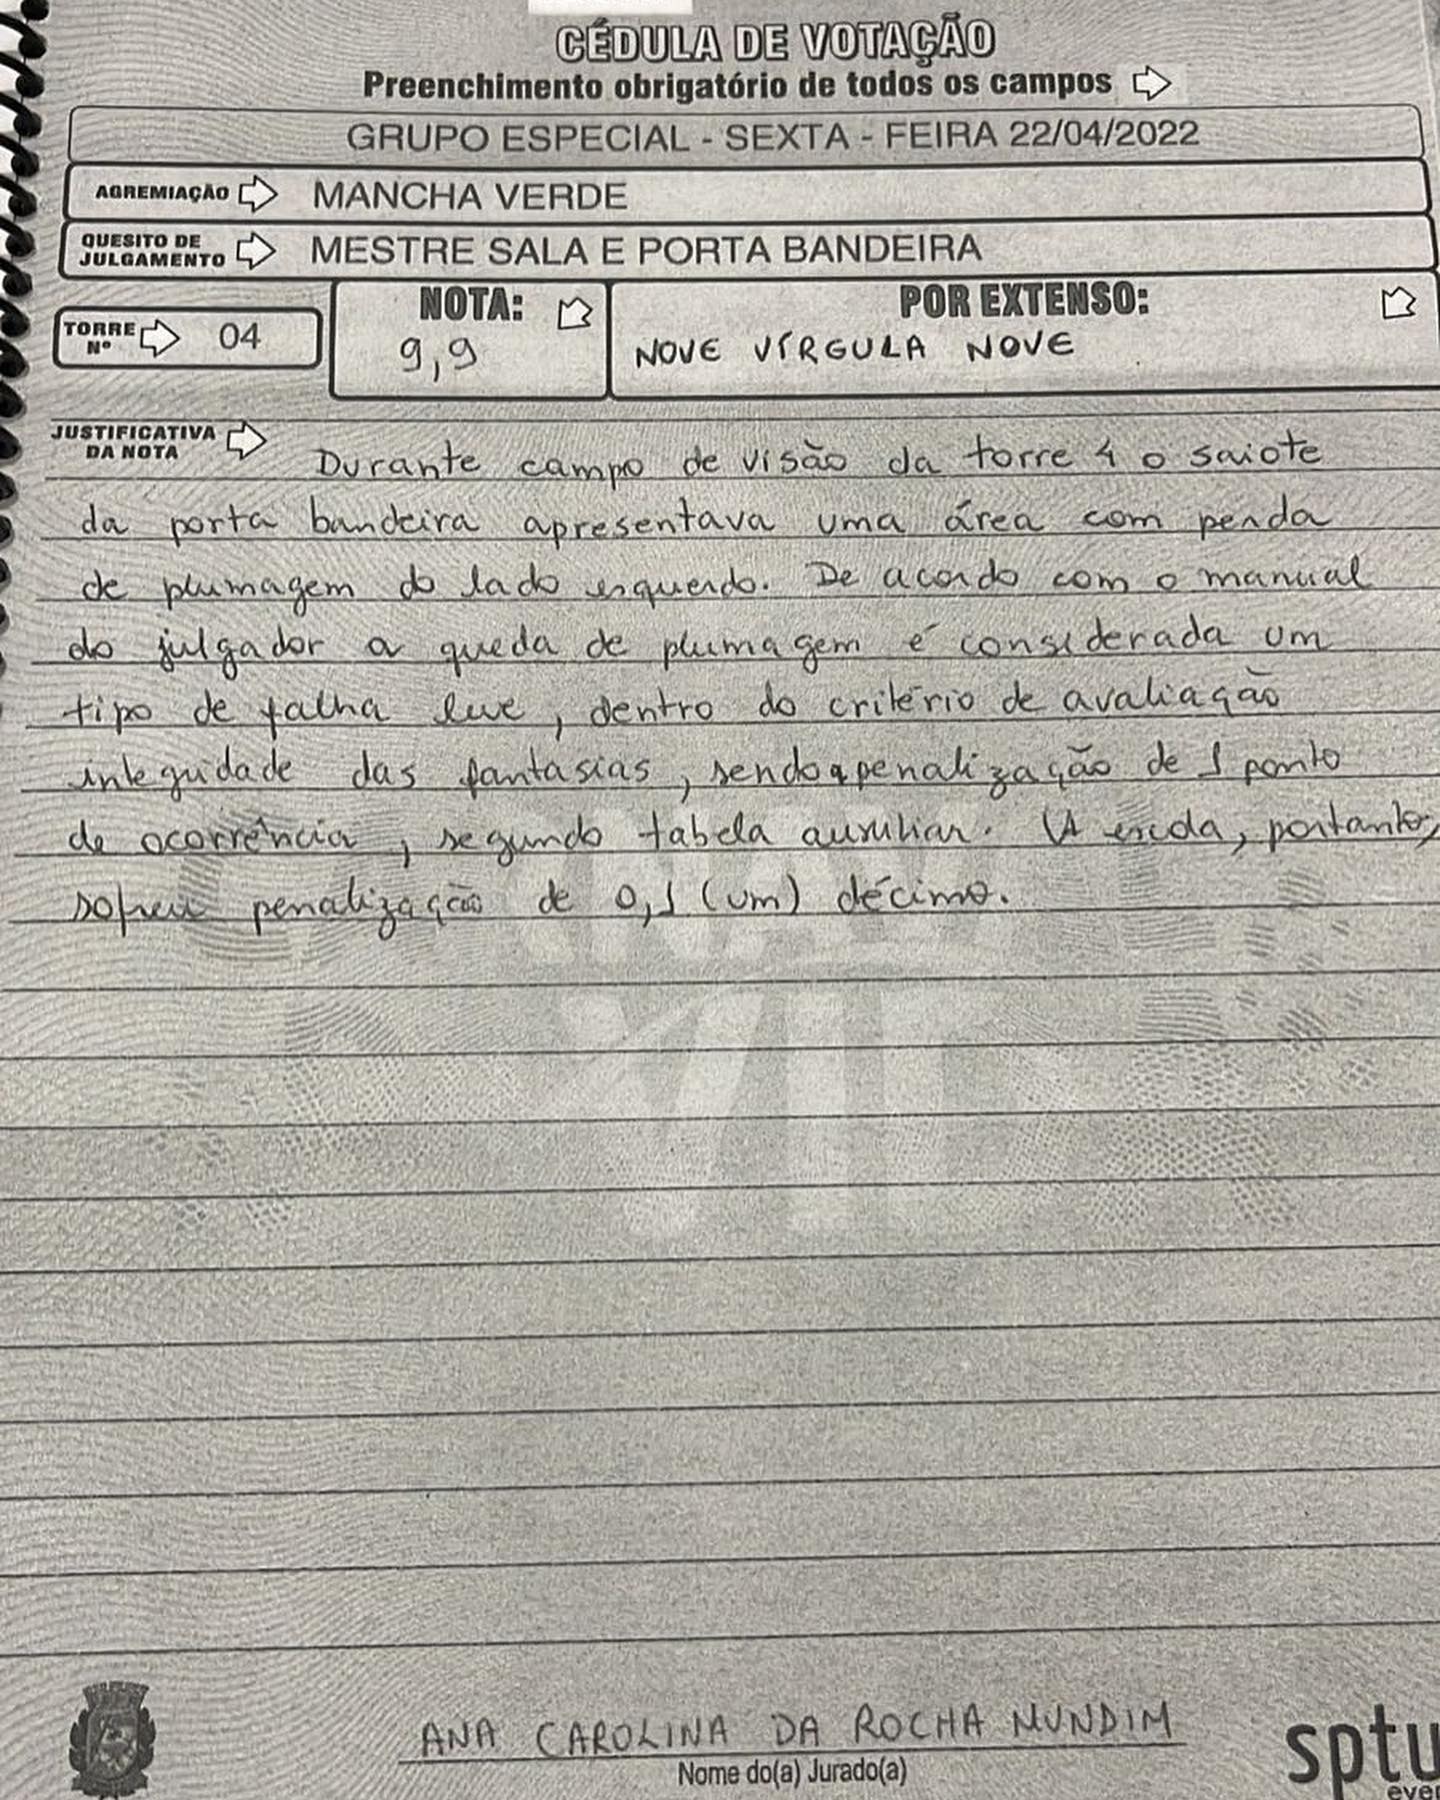 CÉDULA DE VOTAÇÃO
Preenchimento obrigatório de todos os campos
GRUPO ESPECIAL - SEXTA - FEIRA 22/04/2022
AGREMIAÇÃO MANCHA VERDE
QUESITO DE JULGAMENTO MESTRE SALA E PORTA BANDEIRA
TORRE Nº 04
NOTA:
9,9
POR EXTENSO:
NOVE VÍRGULA NOVE
JUSTIFICATIVA DA NOTA
Durante campo de visão da torre 4 o saiote
da porta bandeira apresentava uma área com perda
de plumagem do lado esquerdo. De acordo com o manual
do julgador a queda de plumagem é considerada um
tipo de falha leve, dentro do critério de avaliação
integridade das fantasias, sendo a penalização de 1 ponto
de ocorrência, segundo tabela auxiliar. A escola, portanto,
sofreu penalização de 0,1 (um) décimo.
ANA CAROLINA DA ROCHA MUNDIM
Nome do(a) Jurado(a)
sptu
even